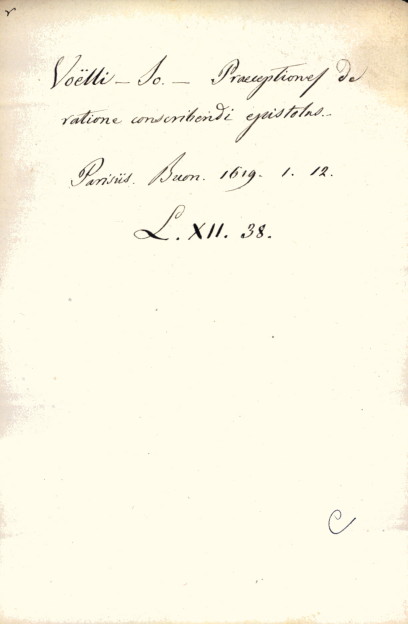 Voëlli – Jo. – Praeceptiones de
ratione conscribendi epistolas.
Parisiis. Buon. 1619. 1. 12.
L. XII. 38.
C